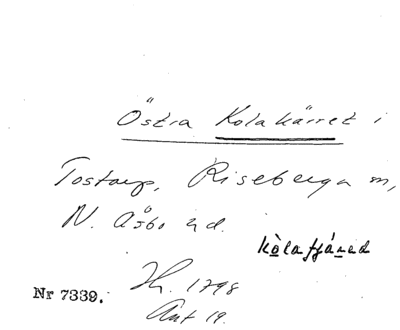 Östra Kolakärret i
Tostarp, Riseberga m,
N. Åsbo hd.
kòlafjáred
Nr 7339. Hr. 1798
Ant 19.